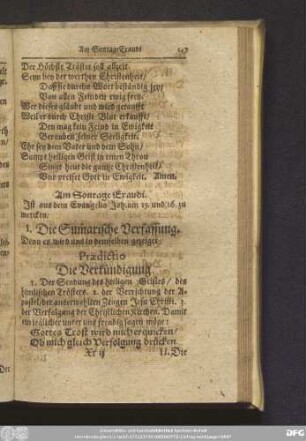 Am Sontage Exaudi
Der Höchste Tröster soll allzeit
Seyn bey der werthen Christenheit/
Daß sie durchs Wort beständig sey/
Von allen Feinden ewig frey.
Wer dieses gläubt und wird getaufft
Weil er durch Christi Blut erkaufft/
Den mag kein Feind in Ewigkeit
Berauben seiner Seeligkeit.
Ehr sey dem Vater und dem Sohn/
Sampt heiligen Geist in einem Thron
Singt heut die gantze Christenheit/
Und preiset Gott in Ewigkeit. Amen.
Am Sontage Exaudi.
Ist aus dem Evangelio Joh. am 15. und 16. zu
mercken.
I. Die Sumarische Verfassung.
Denn es wird uns in demselben gezeiget
Prædictio
Die Verkündigung
1. Der Sendung des heiligen Geistes/ des
himlischen Trösters. 2. der Verrichtung der A-
postel/ der auserwehlten Zeugen Jesu Christi. 3.
der Verfolgung der Christlichen Kirchen. Damit
ein ieglicher unter uns freudig sagen möge:
Gottes Trost wird mich erquicken/
Ob mich gleich Verfolgung drücken.
II. Die